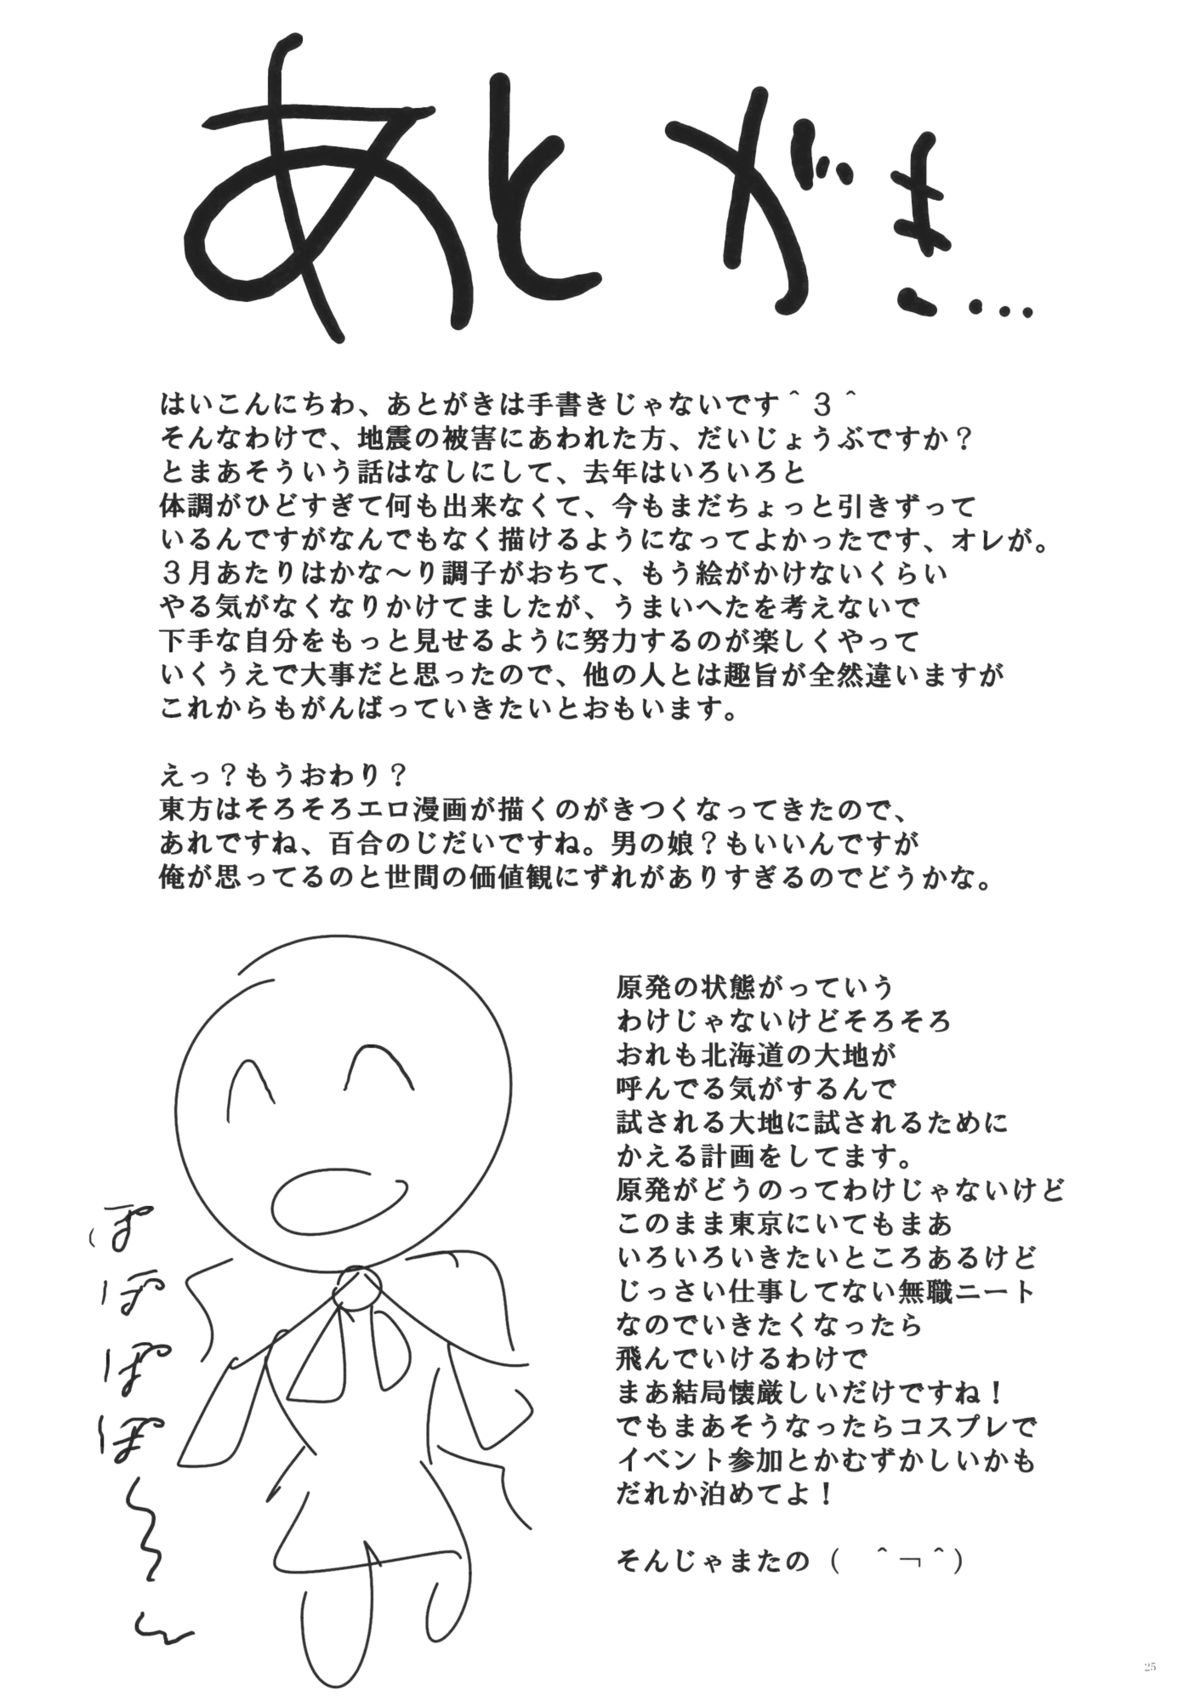 あとがき…
はいこんにちわ、あとがきは手書きじゃないです＾３＾
そんなわけで、地震の被害にあわれた方、だいじょうぶですか？
とまあそういう話はなしにして、去年はいろいろと
体調がひどすぎて何も出来なくて、今もまだちょっと引きずって
いるんですがなんでもなく描けるようになってよかったです、オレが。
３月あたりはかな～り調子がおちて、もう絵がかけないくらい
やる気がなくなりかけてましたが、うまいへたを考えないで
下手な自分をもっと見せるように努力するのが楽しくやって
いくうえで大事だと思ったので、他の人とは趣旨が全然違いますが
これからもがんばっていきたいとおもいます。
えっ？もうおわり？
東方はそろそろエロ漫画が描くのがきつくなってきたので、
あれですね、百合のじだいですね。男の娘？もいいんですが
俺が思ってるのと世間の価値観にずれがありすぎるのでどうかな。
原発の状態がっていう
わけじゃないけどそろそろ
おれも北海道の大地が
呼んでる気がするんで
試される大地に試されるために
かえる計画をしてます。
原発がどうのってわけじゃないけど
このまま東京にいてもまあ
いろいろいきたいところあるけど
じっさい仕事してない無職ニート
なのでいきたくなったら
飛んでいけるわけで
まあ結局懐厳しいだけですね！
でもまあそうなったらコスプレで
イベント参加とかむずかしいかも
だれか泊めてよ！
そんじゃまたの（　＾￢＾）
ぽぽぽぽ～～ん
25